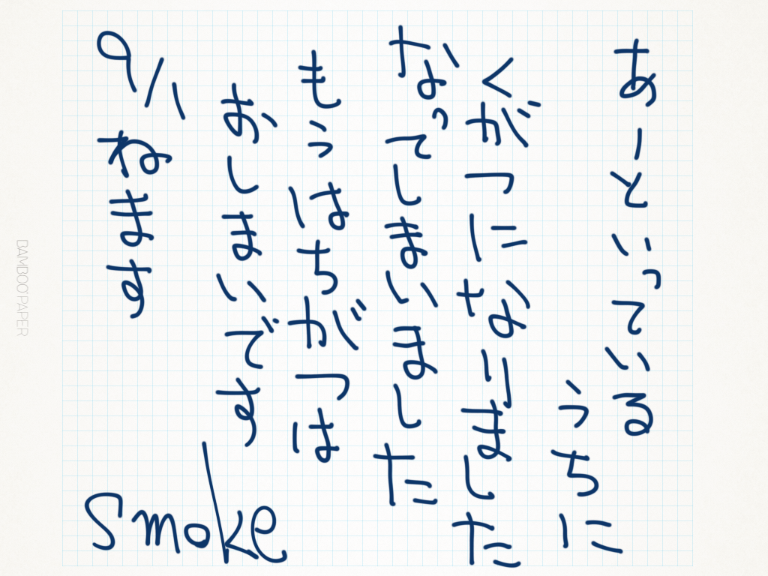 あーといっている
うちに
くがつになりました
なってしまいました
もうはちがつは
おしまいです
9/1 ねます
smoke
BAMBOO PAPER